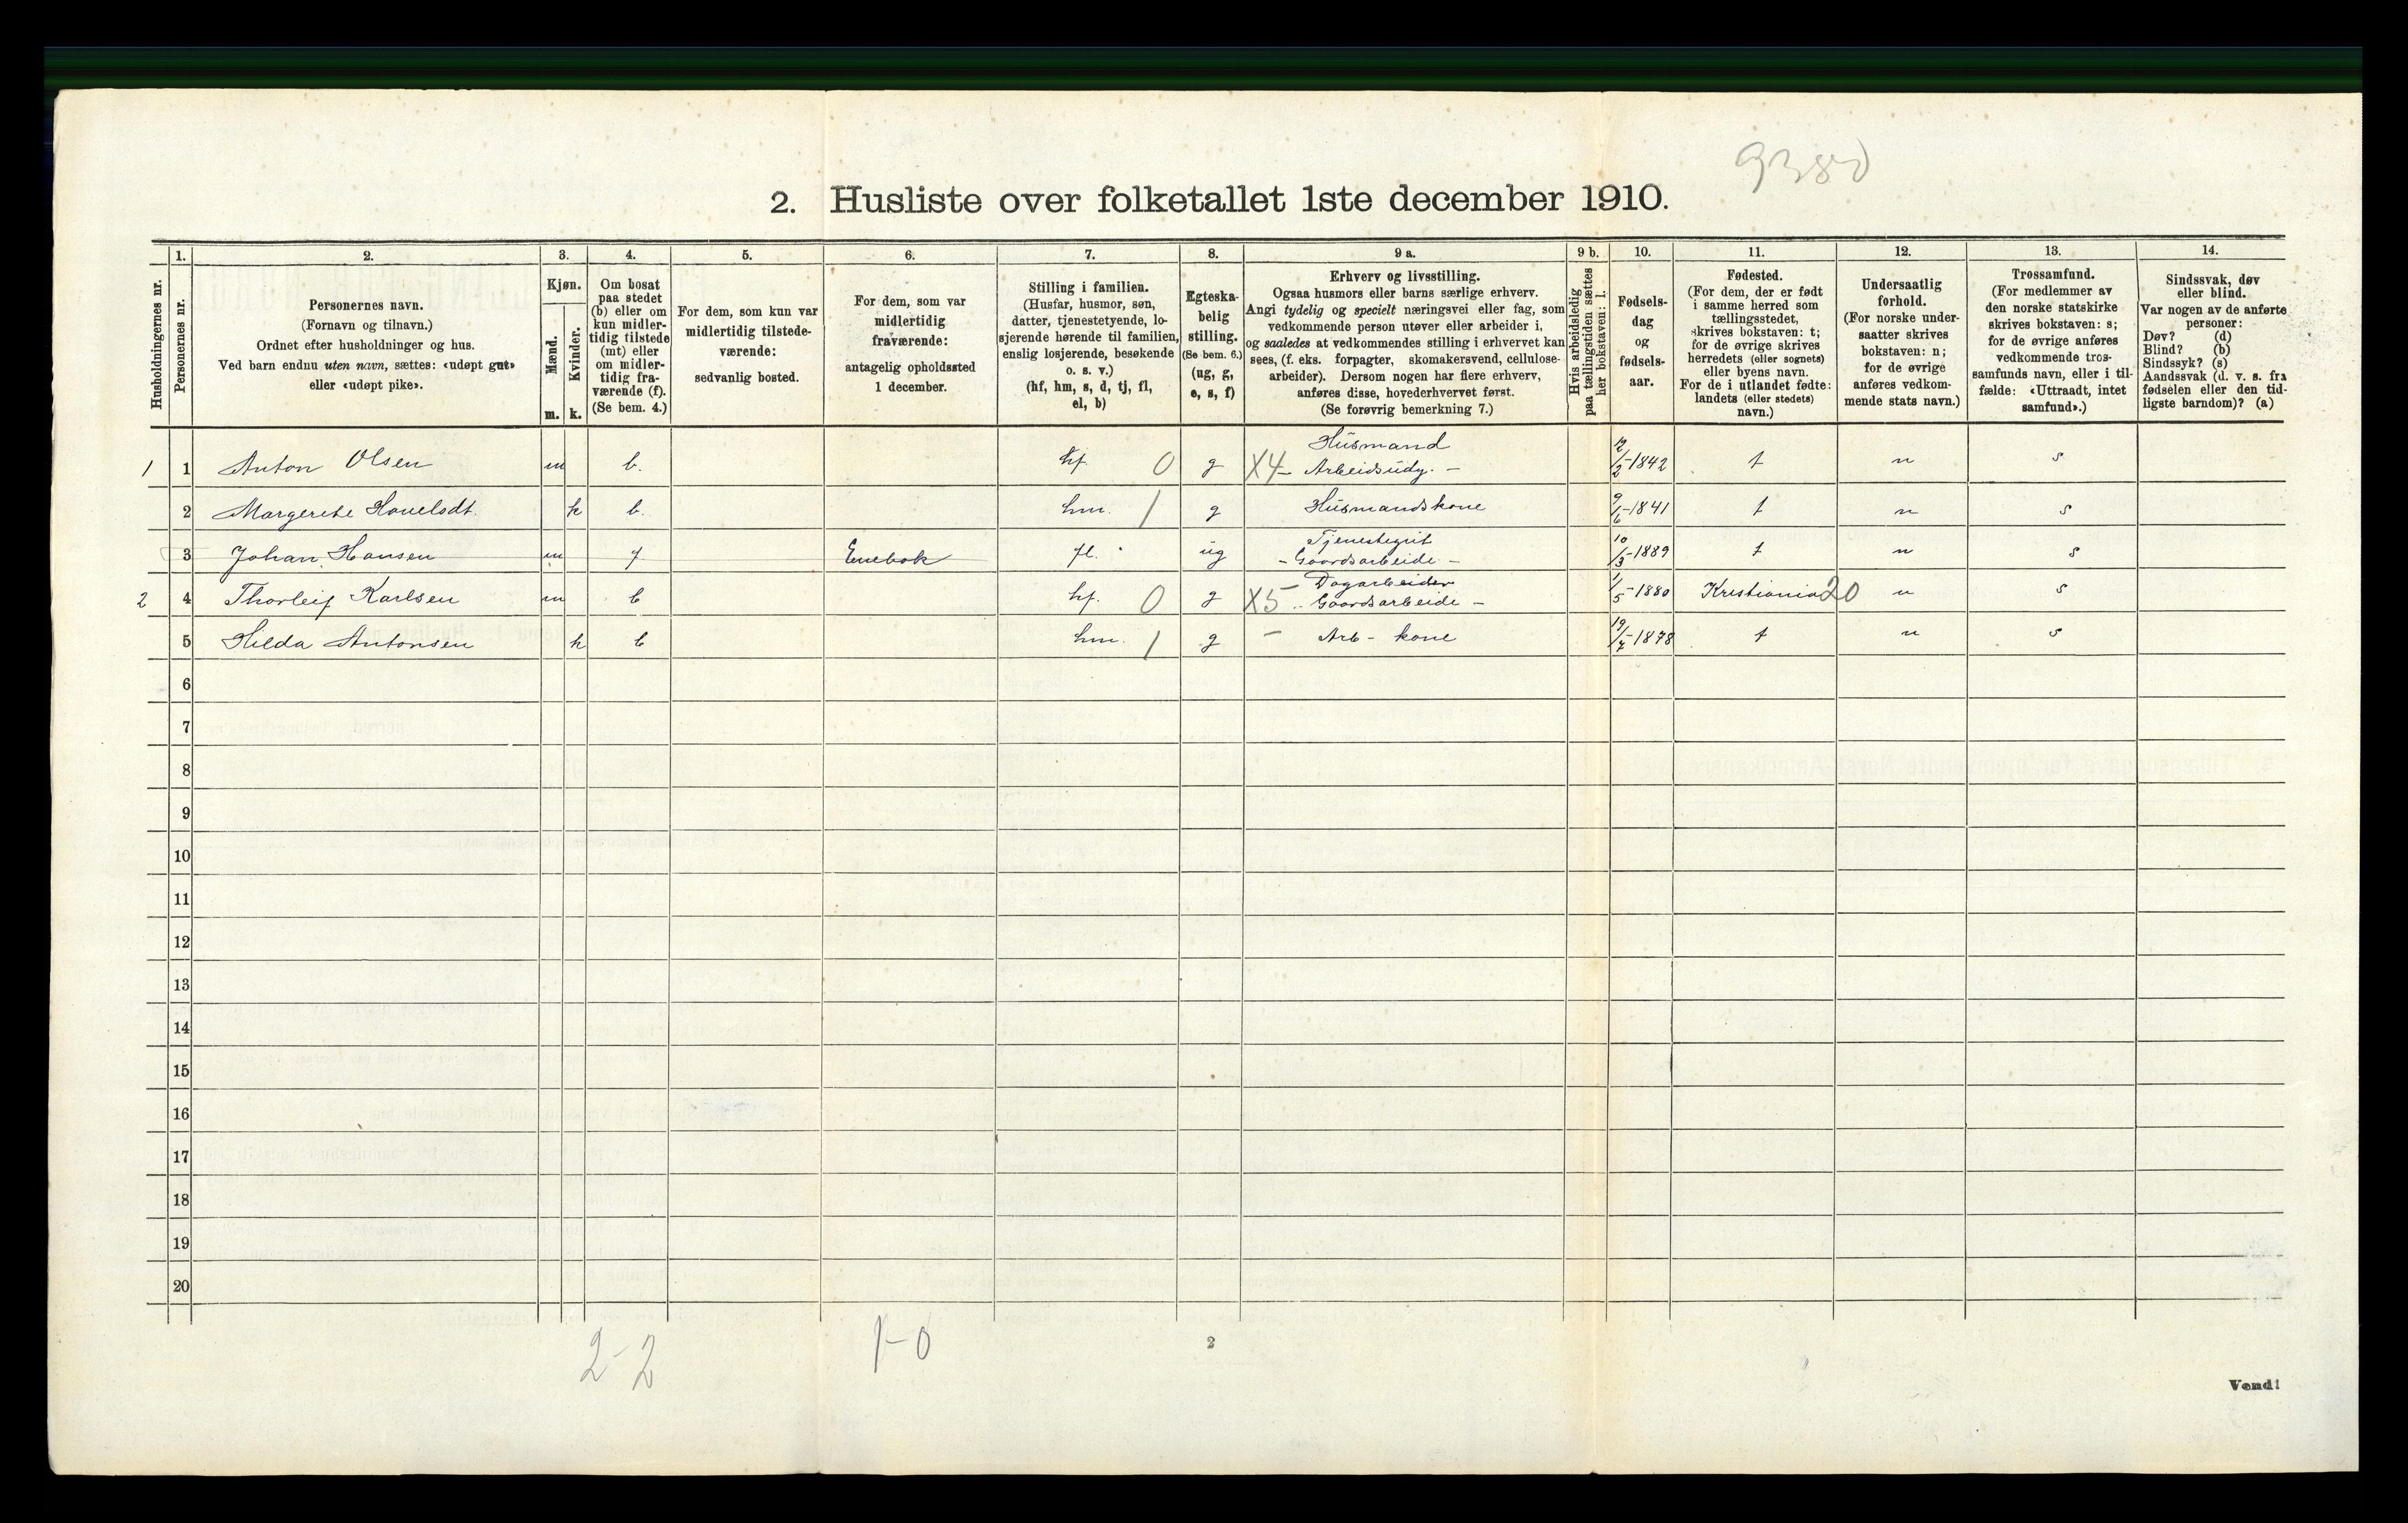 9380
2. Husliste over folketallet 1ste december 1910.
Husholdningernes nr.
1.
Personernes nr.
2.
Personernes navn.
(Fornavn og tilnavn.)
Ordnet efter husholdninger og hus.
Ved barn endnu uten navn, sættes: «udøpt gut»
eller «udøpt pike».
3.
Kjøn.
Mænd.
m.
Kvinder.
k.
4.
Om bosat
paa stedet
(b) eller om
kun midler-
tidig tilstede
(mt) eller
om midler-
tidig fra-
værende (f).
(Se bem. 4.)
5.
For dem, som kun var
midlertidig tilstede-
værende:
sedvanlig bosted.
6.
For dem, som var
midlertidig
fraværende:
antagelig opholdssted
1 december.
7.
Stilling i familien.
(Husfar, husmor, søn,
datter, tjenestetyende, lo-
sjerende hørende til familien,
enslig losjerende, besøkende
o. s. v.)
(hf, hm, s, d, tj, fl,
el, b)
8.
Egteska-
belig
stilling.
(Se bem. 6.)
(ug, g,
e, s, f)
9 a.
Erhverv og livsstilling.
Ogsaa husmors eller barns særlige erhverv.
Angi tydelig og specielt næringsvei eller fag, som
vedkommende person utøver eller arbeider i,
og saaledes at vedkommendes stilling i erhvervet kan
sees, (f. eks. forpagter, skomakersvend, cellulose-
arbeider). Dersom nogen har flere erhverv,
anføres disse, hovederhvervet først.
(Se forøvrig bemerkning 7.)
9 b.
Hvis arbeidsledig
paa tællingstiden sættes
her bokstaven: l.
10.
Fødsels-
dag
og
fødsels-
aar.
11.
Fødested.
(For dem, der er født
i samme herred som
tællingsstedet,
skrives bokstaven: t;
for de øvrige skrives
herredets (eller sognets)
eller byens navn.
For de i utlandet fødte:
landets (eller stedets)
navn.)
12.
Undersaatlig
forhold.
(For norske under-
saatter skrives
bokstaven: n;
for de øvrige
anføres vedkom-
mende stats navn.)
13.
Trossamfund.
(For medlemmer av
den norske statskirke
skrives bokstaven: s;
for de øvrige anføres
vedkommende tros-
samfunds navn, eller i til-
fælde: «Uttraadt, intet
samfund».)
14.
Sindssvak, døv
eller blind.
Var nogen av de anførte
personer:
Døv? (d)
Blind? (b)
Sindssyk? (s)
Aandssvak (d. v. s. fra
fødselen eller den tid-
ligste barndom)? (a)
1 1 Anton Olsen m b. hf. 0 g X4 Husmand - Arbeidsudy. - 12/2-1842 t n s
2 Margerete Hovelsdt. k b. hm. 1 g Husmandskone 9/6-1841 t n s
3 Johan Hansen m f Enebok fl. ug Tjenestegut - Gaardsarbeide - 10/3-1889 t n s
2 4 Thorleif Karlsen m b hf. 0 g X5 Dagarbeider - Gaardsarbeide - 1/5-1880 Kristiania 20 n s
5 Hilda Antonsen k b hm. 1 g - Arb - kone 19/7-1878 t n s
6
7
8
9
10
11
12
13
14
15
16
17
18
19
20
2-2
1-0
2
Vend!